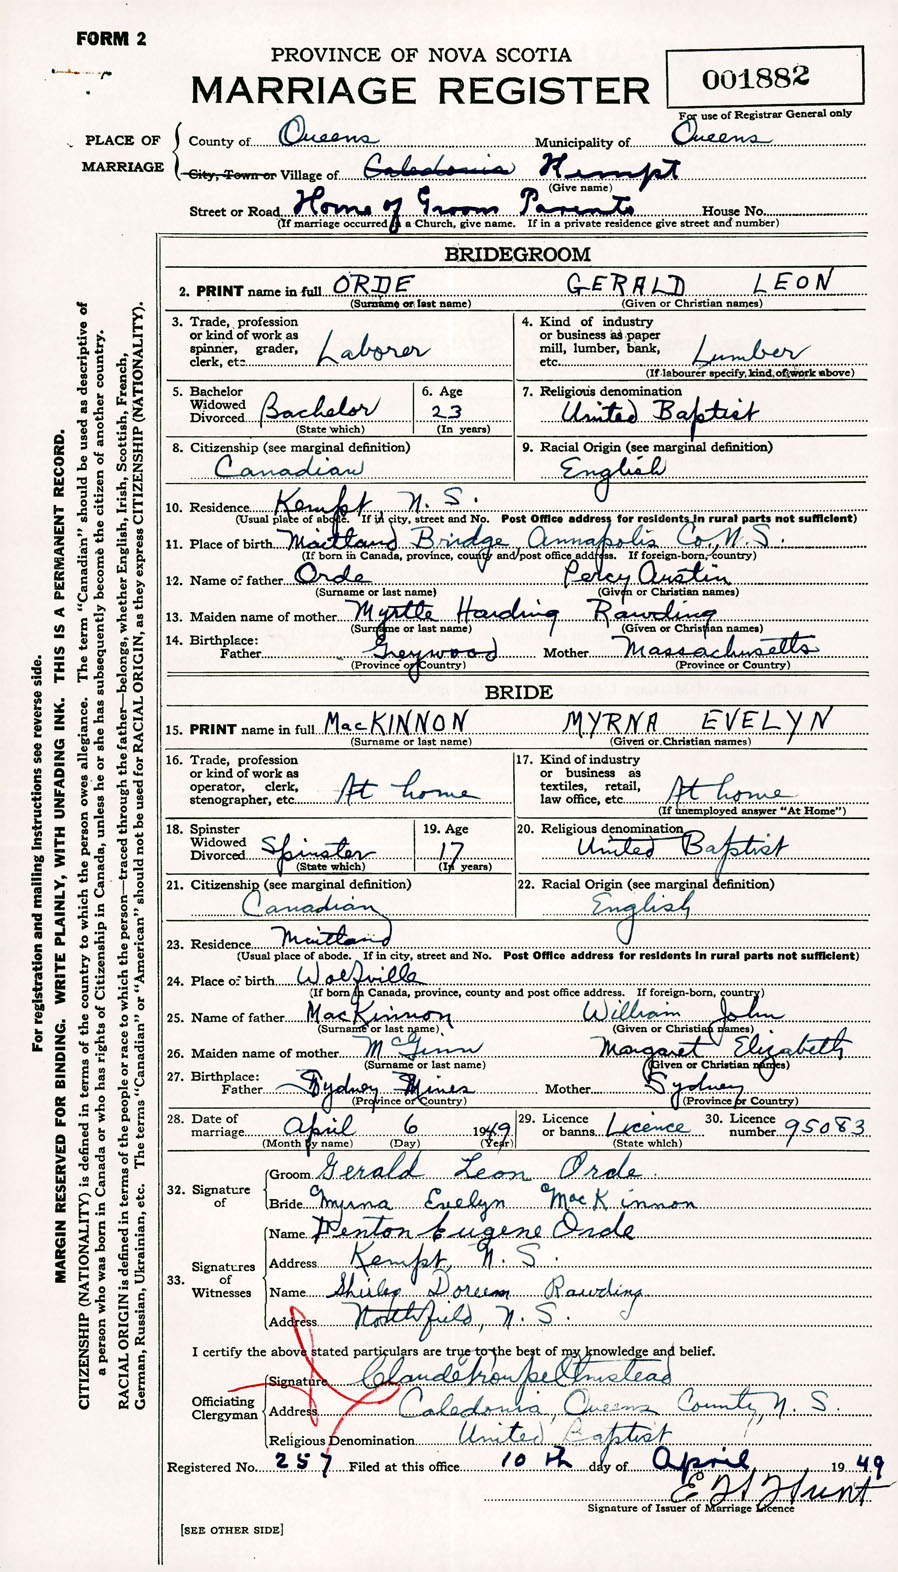 FORM 2
PROVINCE OF NOVA SCOTIA
MARRIAGE REGISTER
001882
For use of Registrar General only
PLACE OF MARRIAGE
County of Queens Municipality of Queens
City, Town or Village of Caledonia Kempt
(Give name)
Street or Road Home of Groom Parents House No.
(If marriage occurred in a Church, give name. If in a private residence give street and number)
BRIDEGROOM
2. PRINT name in full ORDE GERALD LEON
(Surname or last name) (Given or Christian names)
3. Trade, profession or kind of work as spinner, grader, clerk, etc. Laborer
4. Kind of industry or business as paper mill, lumber, bank, etc. Lumber
(If labourer specify kind of work above)
5. Bachelor Widowed Divorced Bachelor
(State which)
6. Age 23
(In years)
7. Religious denomination United Baptist
8. Citizenship (see marginal definition) Canadian
9. Racial Origin (see marginal definition) English
10. Residence Kempt N. S.
(Usual place of abode. If in city, street and No. Post Office address for residents in rural parts not sufficient)
11. Place of birth Maitland Bridge Annapolis Co., N.S.
(If born in Canada, province, county and/post office address. If foreign-born, country)
12. Name of father Orde Percy Austin
(Surname or last name) (Given or Christian names)
13. Maiden name of mother Myrtle Harding Rawding
(Surname or last name) (Given or Christian names)
14. Birthplace: Father Greywood Mother Massachusetts
(Province or Country) (Province or Country)
BRIDE
15. PRINT name in full MacKINNON MYRNA EVELYN
(Surname or last name) (Given or Christian names)
16. Trade, profession or kind of work as operator, clerk, stenographer, etc. At home
17. Kind of industry or business as textiles, retail, law office, etc. At home
(If unemployed answer "At Home")
18. Spinster Widowed Divorced Spinster
(State which)
19. Age 17
(In years)
20. Religious denomination United Baptist
21. Citizenship (see marginal definition) Canadian
22. Racial Origin (see marginal definition) English
23. Residence Maitland
(Usual place of abode. If in city, street and No. Post Office address for residents in rural parts not sufficient)
24. Place of birth Wolfville
(If born in Canada, province, county and post office address. If foreign-born, country)
25. Name of father MacKinnon William John
(Surname or last name) (Given or Christian names)
26. Maiden name of mother McGinn Margaret Elizabeth
(Surname or last name) (Given or Christian names)
27. Birthplace: Father Sydney Mines Mother Sydney
(Province or Country) (Province or Country)
28. Date of marriage April 6 1949
(Month by name) (Day) (Year)
29. Licence or banns Licence
(State which)
30. Licence number 95083
32. Signature of
Groom Gerald Leon Orde
Bride Myrna Evelyn MacKinnon
33. Signatures of Witnesses
Name Denton Eugene Orde
Address Kempt, N. S.
Name Shirley Doreen Rawding
Address Northfield, N. S.
I certify the above stated particulars are true to the best of my knowledge and belief.
Officiating Clergyman
Signature Claude Olmstead
Address Caledonia, Queens County, N. S.
Religious Denomination United Baptist
Registered No. 257 Filed at this office 10 th day of April 1949
E H Hunt
Signature of Issuer of Marriage Licence
[SEE OTHER SIDE]
For registration and mailing instructions see reverse side.
MARGIN RESERVED FOR BINDING. WRITE PLAINLY, WITH UNFADING INK. THIS IS A PERMANENT RECORD.
CITIZENSHIP (NATIONALITY) is defined in terms of the country to which the person owes allegiance. The term "Canadian" should be used as descriptive of
a person who was born in Canada or who has rights of Citizenship in Canada, unless he or she has subsequently become the citizen of another country.
RACIAL ORIGIN is defined in terms of the people or race to which the person—traced through the father—belongs, whether English, Irish, Scottish, French,
German, Russian, Ukrainian, etc. The terms "Canadian" or "American" should not be used for RACIAL ORIGIN, as they express CITIZENSHIP (NATIONALITY).